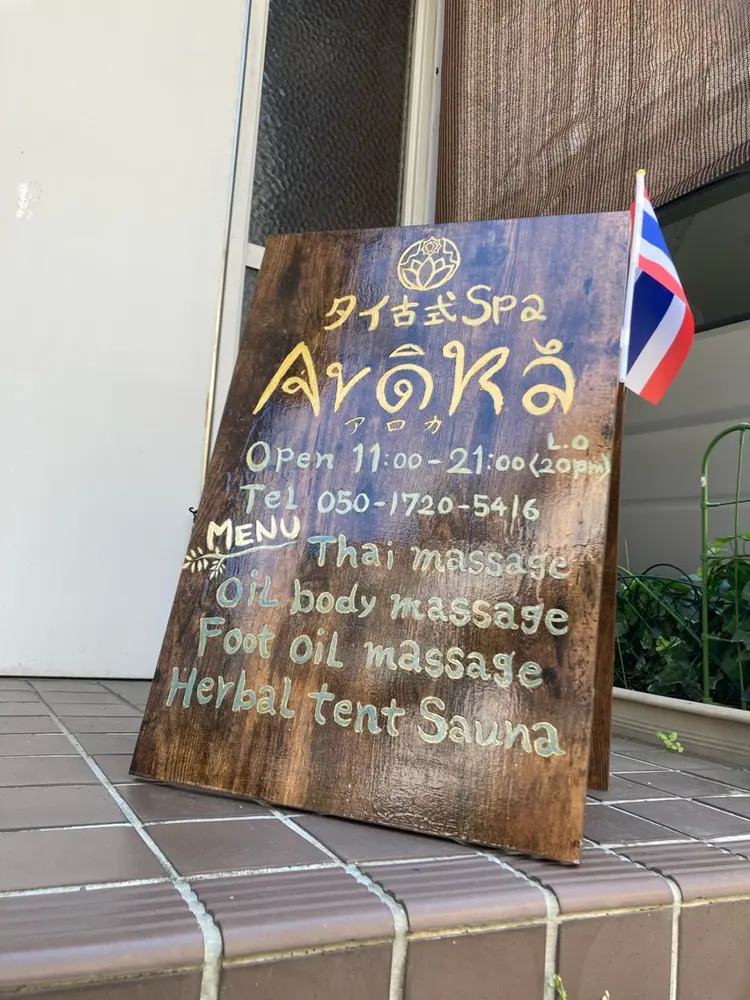 タイ古式Spa
Aroka
アロカ
L.O
Open 11:00-21:00(20pm)
Tel 050-1720-5416
MENU
Thai massage
Oil body massage
Foot oil massage
Herbal tent Sauna